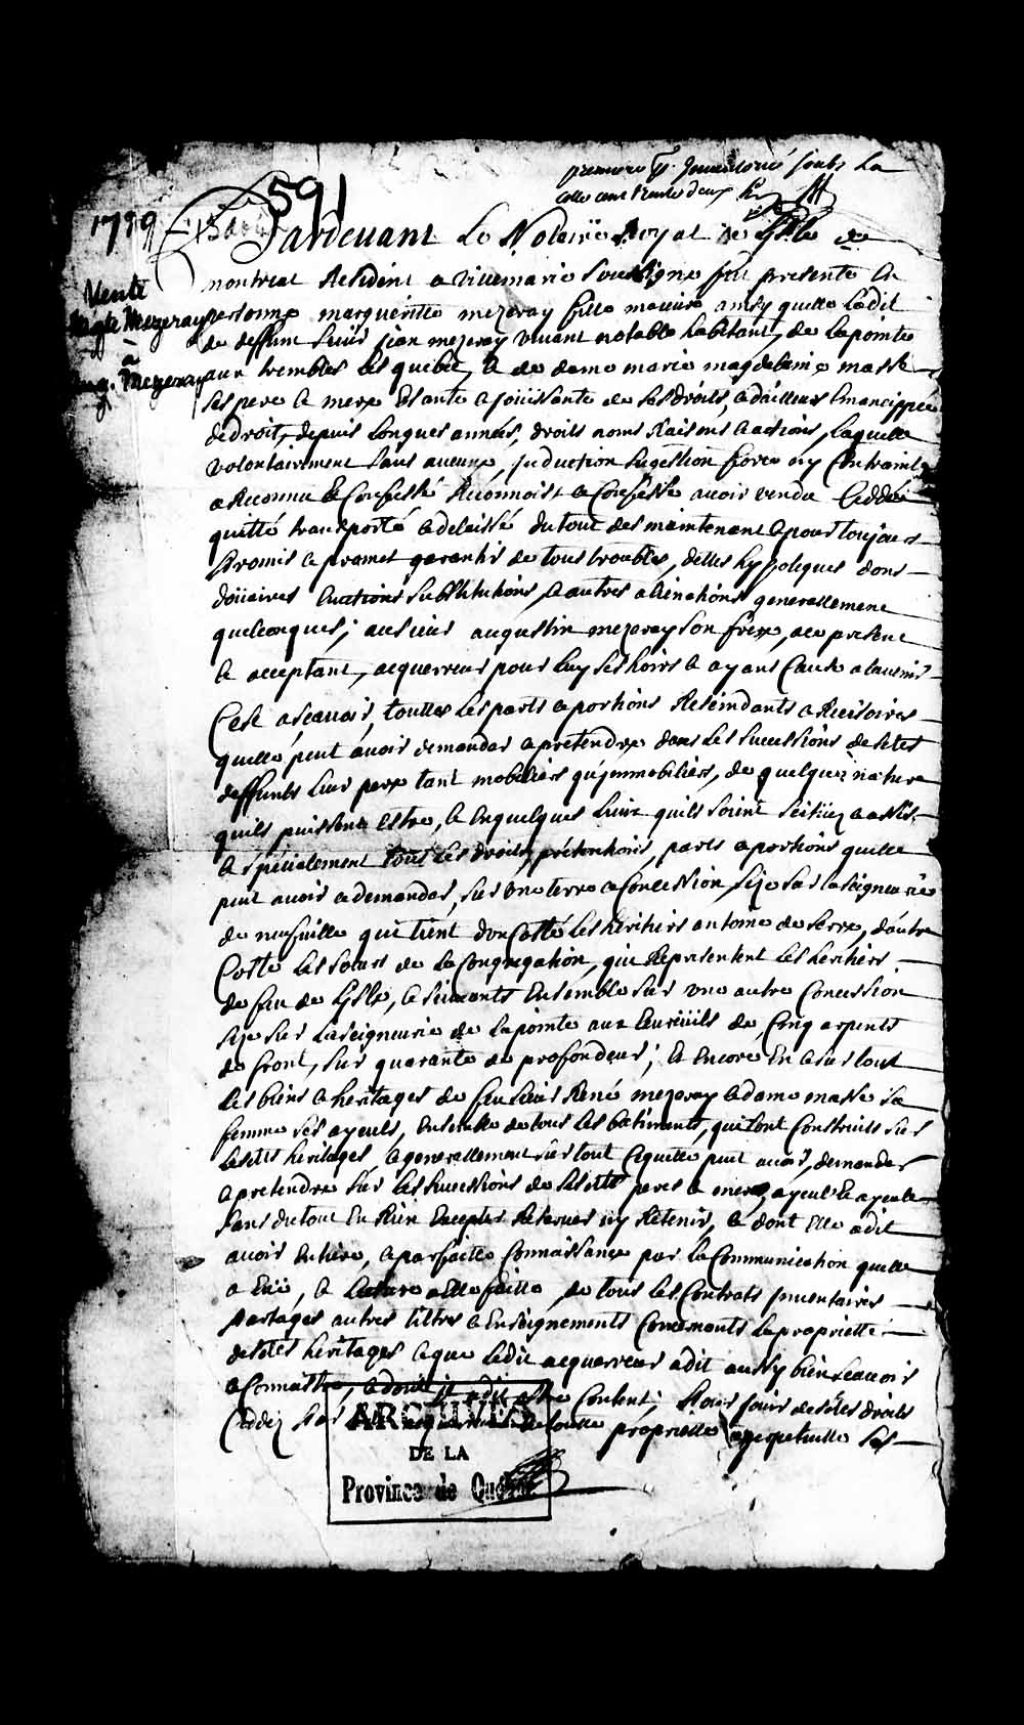 premiere p. Inventorié soubs la
cotte cent trente deux
591
1739
13 aout
Pardevant Le Notaire Royal de Lisle de
montreal Resident a villemarie soussigné fut presente En
Vente
Mgte Mezeray
à
Aug. Mezeray
personne margueritte mezeray fille majeure ainsy quelle ladit
de deffunt sieur jean mezeray vivant notable habitant, de lapointe
aux trembles Les quebec, & de dame marie magdelaine masse
ses pere & mere Usante & jouissante de ses droits, & dailleurs Emancippée
de droit, depuis Longues années, droits noms Raisons & actions, Laquelle
volontairement sans aucune, induction sugestion force ny Contrainte
a Reconnu & Confessé Reconnoist & Confesse avoir vendu Ceddé
quitté transporté & delaissé du tout des maintenant & pour toujours
Promis & promet garantir de tous troubles, dettes hypoteques dons
doüaires Evictions substitutions, & autres alienations generallement
quelconques; au sieur augustin mezeray son frere, a ce present
& acceptant, acquerreur pour luy ses hoirs & ayans Cause a lavenir
Cest ascavoir, touttes Les parts & portions Rescindants & Rescisoires
quelle peut avoir demander & pretendre dans Les successions desdits
deffunts Leur pere tant mobiliers qu'jmmobiliers, de quelque nature
quils puissent Estre, & En quelques Lieux quils soient scituez & assis
& specialement tous Les droits, prétentions, parts & portions quelle
peut avoir & demander, sur une terre & Concession, sise sur la seigneurie
de neufville qui tient d'un Costé Les heritiers antoine de serre, d'autre
Costé Les soeurs de La Congregation, qui Representent Les heritiers
de feu de Lisle, & suivants Ensemble sur une autre Concession
sise sur La seigneurie de Lapointe aux Ecureuils de Cinq arpents
de front, sur quarante de profondeur; & encore En & sur tout
Les biens & heritages de feu sieur René mezeray & dame masse sa
femme ses ayeuls, Ensemble de tous Les batiments, qui sont Construits sur
Lesdits heritages & generallement sur tout Ce quelle peut avoir, demander
& pretendre sur Les successions de Lesdits peres & mere, ayeul & ayeule
sans du tout En Rien Excepter Reserver ny Retenir, & dont Elle a dit
avoir Entiere, & parfaitte Connaissance par La Communication quelle
a Eüe, & Lecture a Elle faitte, de tous Les Contrats jnventaires
partages autres tittres & Enseignements Concernants La proprietté
desdits heritages & que Ledit acquerreur a dit aussy bien scavoir
& Connaitre, & dont il a dit estre Content; Pour jouir desdits droits
Ceddez par Ledit acquerreur de toutte proprietté & perpetuelle ses
ARCHIVES
DE LA
Province de Québec